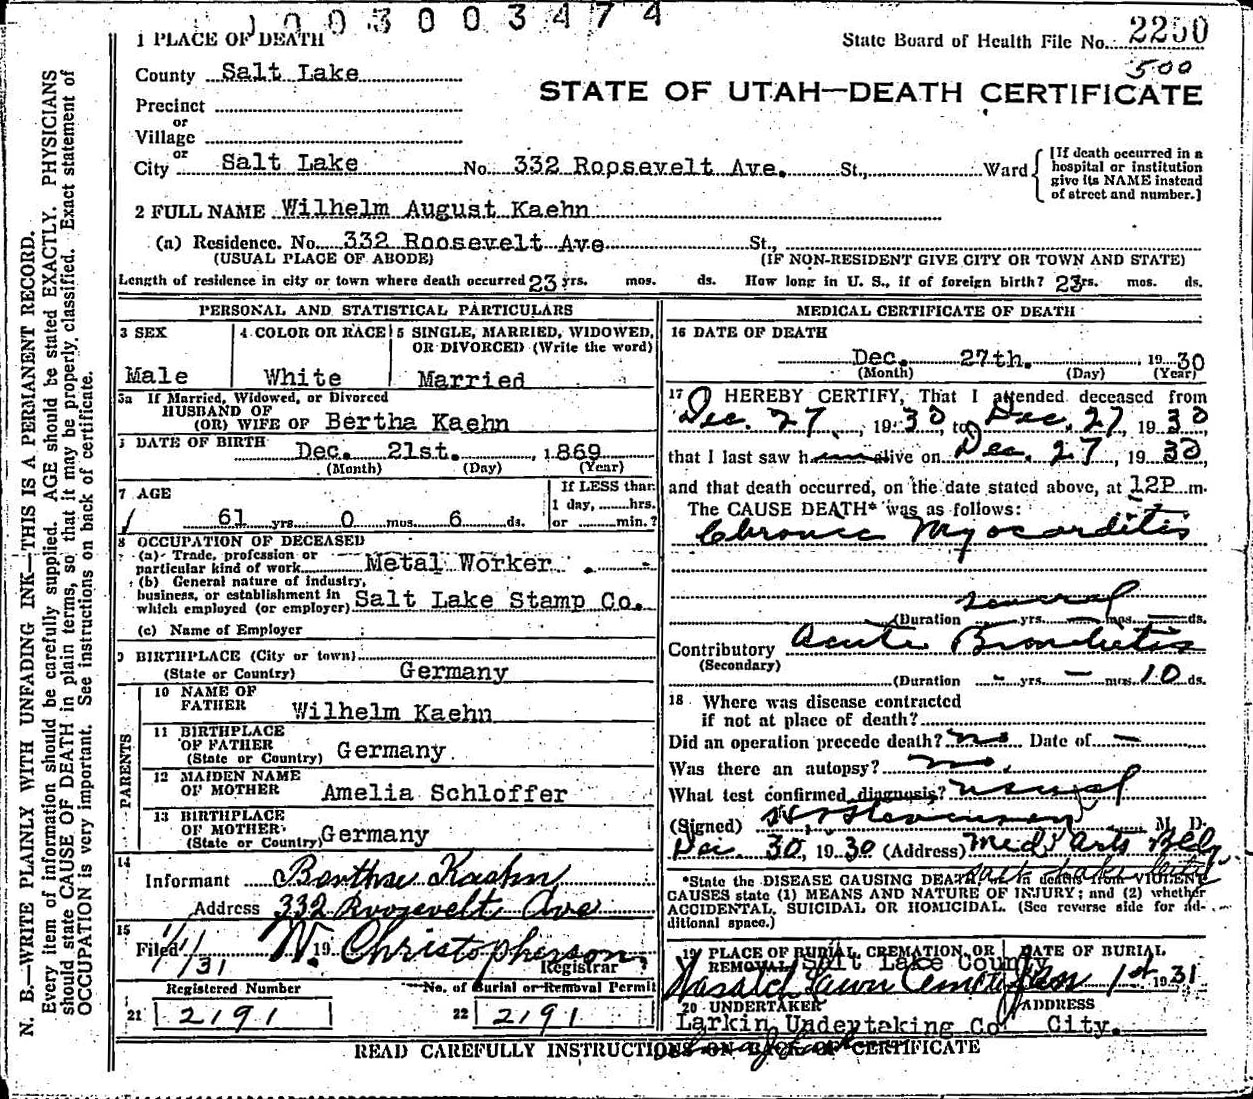 1003003474
1 PLACE OF DEATH
State Board of Health File No. 2250
500
County Salt Lake
STATE OF UTAH—DEATH CERTIFICATE
Precinct
or
Village
or
City Salt Lake No. 332 Roosevelt Ave. St., Ward
[If death occurred in a hospital or institution give its NAME instead of street and number.]
2 FULL NAME Wilhelm August Kaehn
(a) Residence. No. 332 Roosevelt Ave St.,
(USUAL PLACE OF ABODE) (IF NON-RESIDENT GIVE CITY OR TOWN AND STATE)
Length of residence in city or town where death occurred 23 yrs. mos. ds. How long in U. S., if of foreign birth? 23 yrs. mos. ds.
PERSONAL AND STATISTICAL PARTICULARS
3 SEX
Male
4 COLOR OR RACE
White
5 SINGLE, MARRIED, WIDOWED, OR DIVORCED (Write the word)
Married
5a If Married, Widowed, or Divorced
HUSBAND OF
(OR) WIFE OF Bertha Kaehn
DATE OF BIRTH Dec. 21st. , 1869
(Month) (Day) (Year)
7 AGE
61 yrs. 0 mos. 6 ds.
If LESS than
1 day, hrs.
or min.?
8 OCCUPATION OF DECEASED
(a) Trade, profession or
particular kind of work Metal Worker.
(b) General nature of industry,
business, or establishment in
which employed (or employer) Salt Lake Stamp Co.
(c) Name of Employer
9 BIRTHPLACE (City or town)
(State or Country) Germany
PARENTS
10 NAME OF
FATHER Wilhelm Kaehn
11 BIRTHPLACE
OF FATHER
(State or Country) Germany
12 MAIDEN NAME
OF MOTHER Amelia Schloffer
13 BIRTHPLACE
OF MOTHER
(State or Country) Germany
14
Informant Berthe Kaehn
Address 332 Roosevelt Ave
15
Filed 1/1/31 19 W. Christopherson
Registrar
Registered Number No. of Burial or Removal Permit
21 2191 22 2191
MEDICAL CERTIFICATE OF DEATH
16 DATE OF DEATH
Dec. 27th. 1930
(Month) (Day) (Year)
17 I HEREBY CERTIFY, That I attended deceased from
Dec. 27, 1930, to Dec. 27, 1930
that I last saw him alive on Dec. 27, 1930,
and that death occurred, on the date stated above, at 12P m.
The CAUSE DEATH* was as follows:
Chronic Myocarditis
several
(Duration yrs. — mos. — ds.
Contributory Acute Bronchitis
(Secondary)
(Duration - yrs. — mos. 10 ds.
18 Where was disease contracted
if not at place of death?
Did an operation precede death? no Date of —
Was there an autopsy? no.
What test confirmed diagnosis? usual
(Signed) Stevenson M. D.
Dec. 30, 1930 (Address) Med Arts Bldg
Salt Lake City
*State the DISEASE CAUSING DEATH, or in deaths from VIOLENT
CAUSES state (1) MEANS AND NATURE OF INJURY; and (2) whether
ACCIDENTAL, SUICIDAL OR HOMICIDAL. (See reverse side for additional space.)
19 PLACE OF BURIAL, CREMATION, OR REMOVAL Salt Lake County
Wasatch Lawn Cemetery
DATE OF BURIAL
Jan 1st 1931
20 UNDERTAKER
Larkin Undertaking Co
ADDRESS
City.
READ CAREFULLY INSTRUCTIONS ON BACK OF CERTIFICATE
N. B.—WRITE PLAINLY WITH UNFADING INK—THIS IS A PERMANENT RECORD.
Every item of information should be carefully supplied. AGE should be stated EXACTLY. PHYSICIANS
should state CAUSE OF DEATH in plain terms, so that it may be properly classified. Exact statement of
OCCUPATION is very important. See instructions on back of certificate.